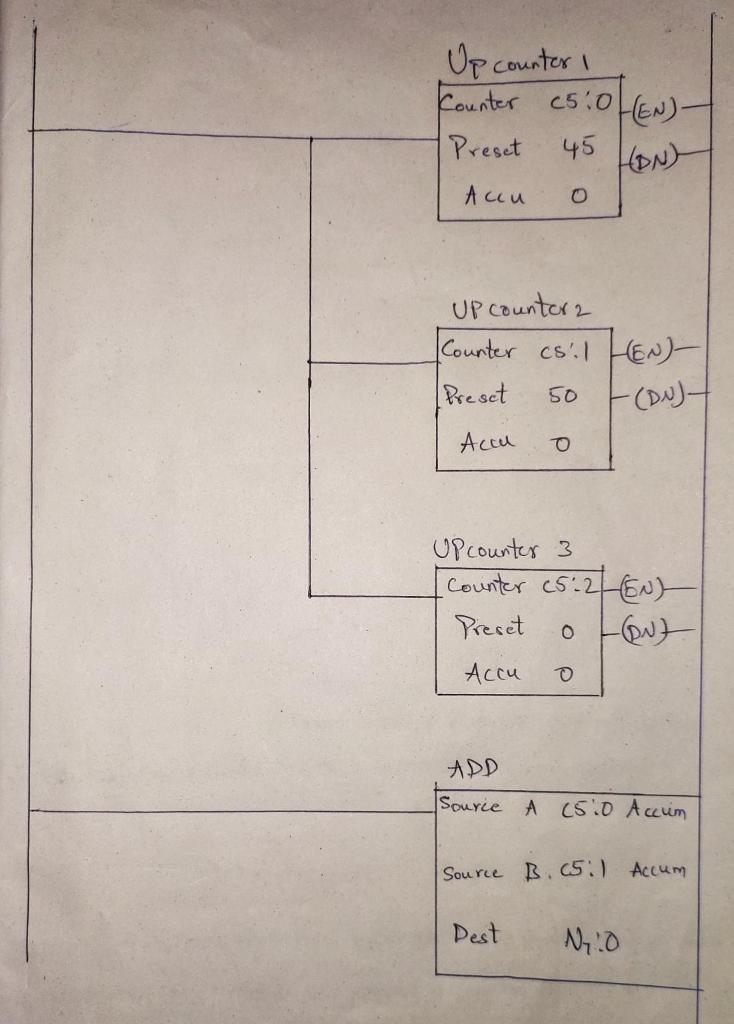 Up counter 1
Counter C5:0 (EN)
Preset 45 (DN)
Accu 0
UP counter 2
Counter C5:1 (EN)
Preset 50 (DN)
Accu 0
UP counter 3
Counter C5:2 (EN)
Preset 0 (DN)
Accu 0
ADD
Source A C5:0 Accum
Source B. C5:1 Accum
Dest N7:0